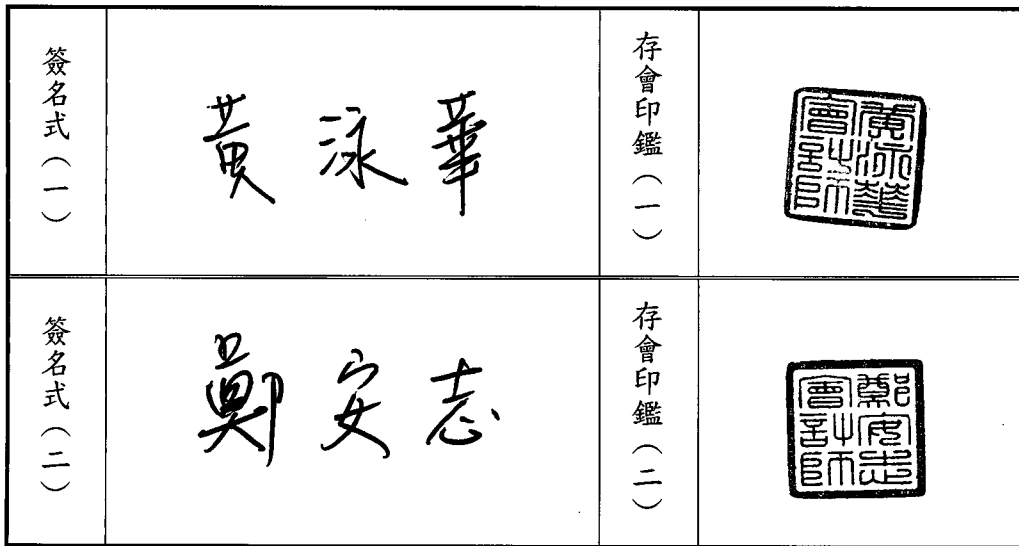 簽名式（一）
黃泳華
存會印鑑（一）
黃泳華
會計師
簽名式（二）
鄭安志
存會印鑑（二）
鄭安志
會計師